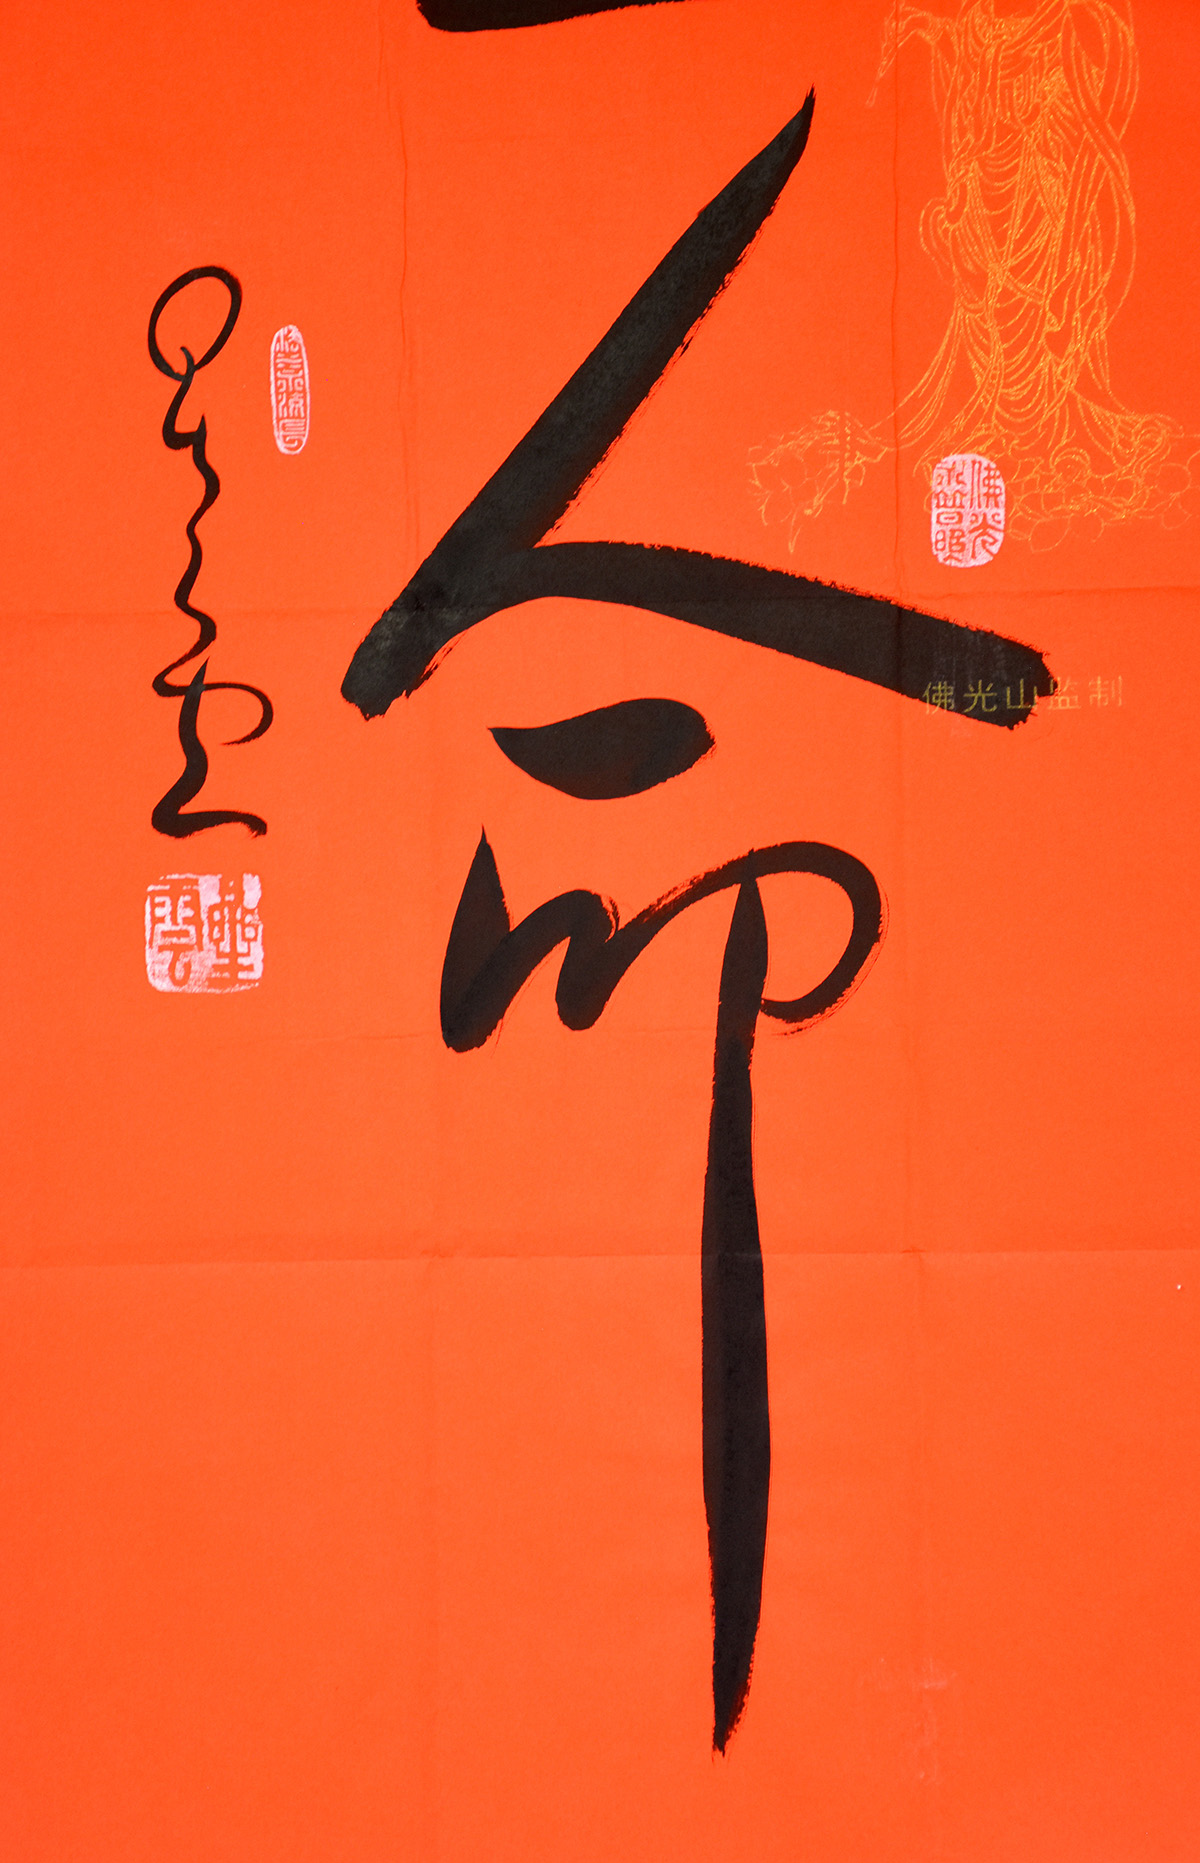 命
佛光山监制
佛光
永普照
星雲
星雲